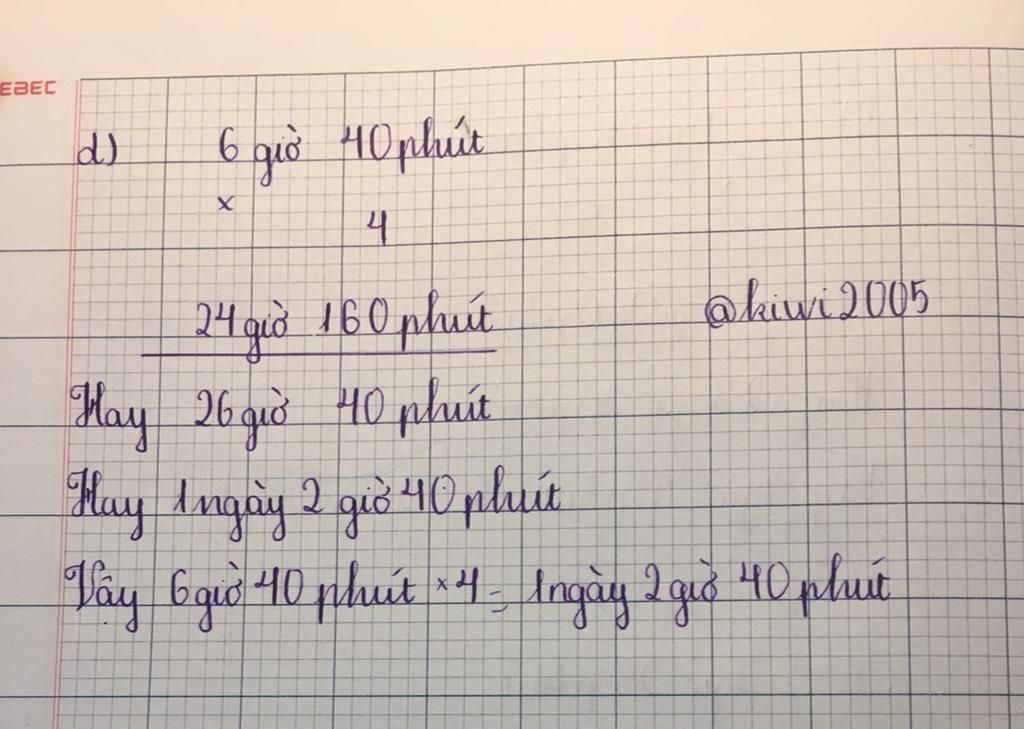 EBEC
d) 6 giờ 40 phút
x
4
24 giờ 160 phút
@kiwi2005
Hay 26 giờ 40 phút
Hay 1 ngày 2 giờ 40 phút
Vậy 6 giờ 40 phút × 4 = 1 ngày 2 giờ 40 phút